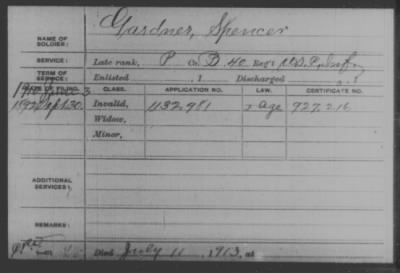 Gardner, Spencer
NAME OF SOLDIER:
SERVICE: Late rank, P Co. D, 40 Reg't U.S.C. Inf.
TERM OF SERVICE: Enlisted , 1 Discharged
DATE OF FILING. CLASS. APPLICATION NO. LAW. CERTIFICATE NO.
1892 Sept 30. Invalid, 1132,981 r Age 927,216
Widow,
Minor,
ADDITIONAL SERVICES:
REMARKS:
Died July 11, 1913, at